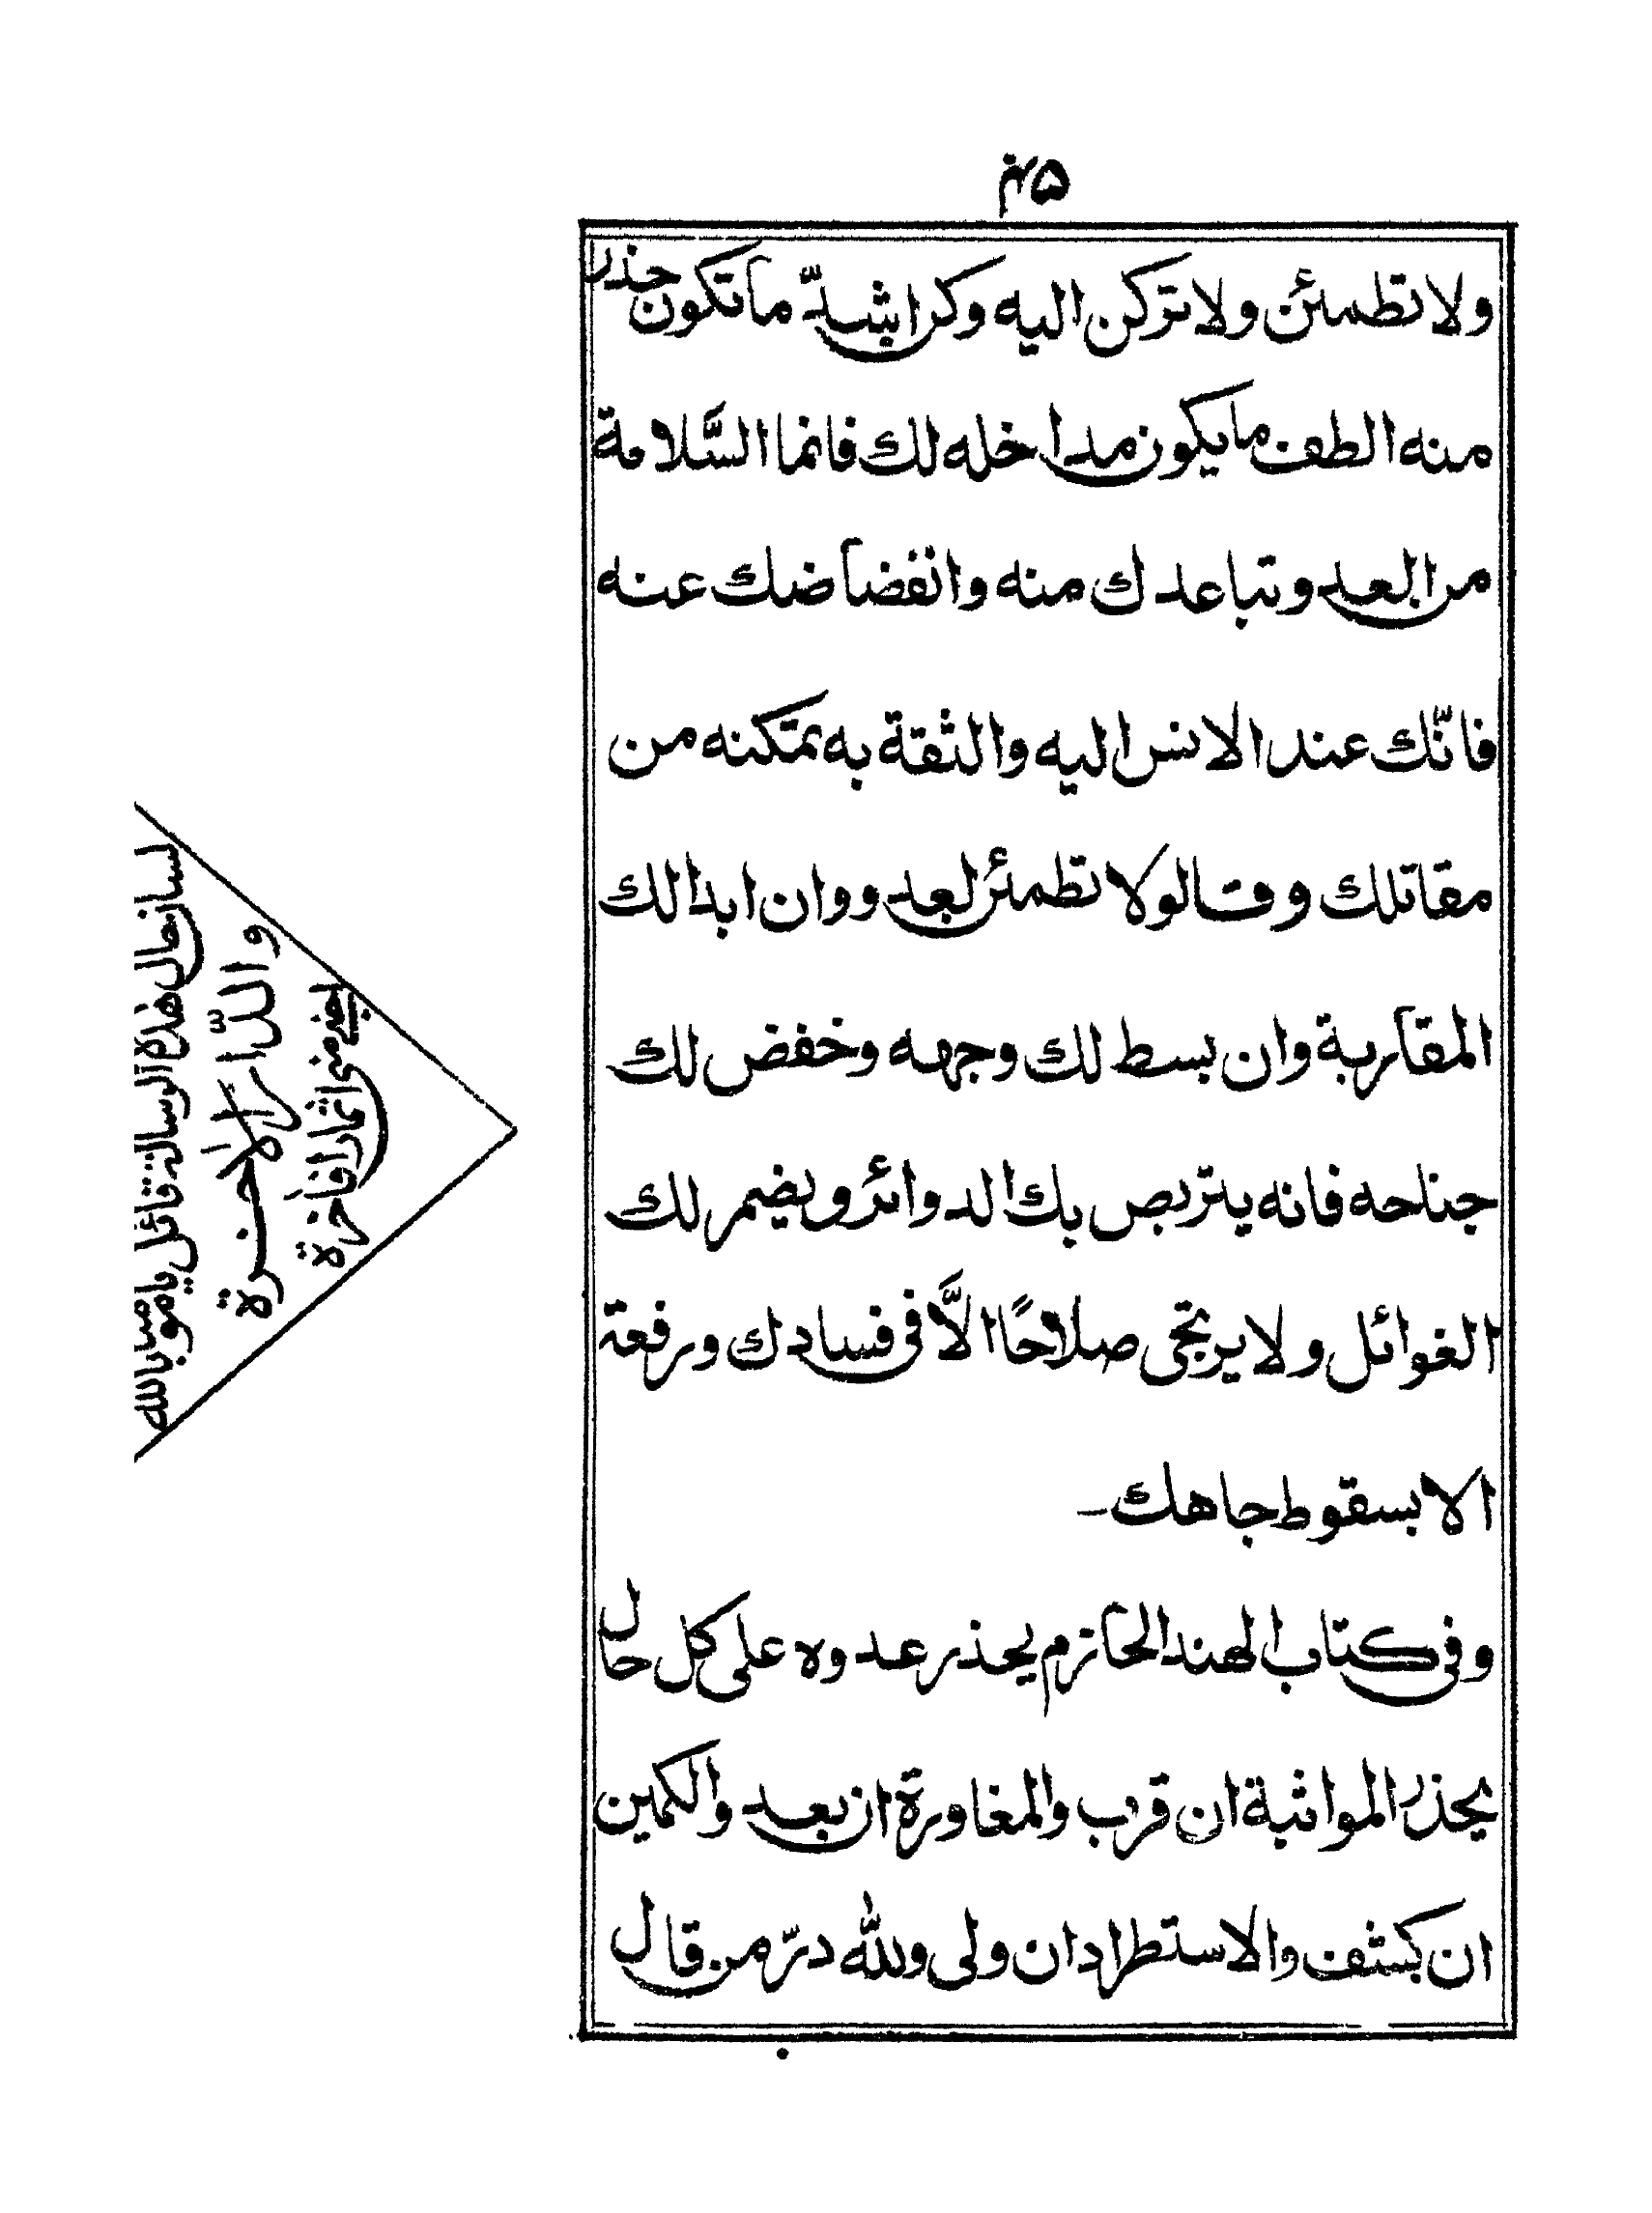 ۴۵
ولا تطمئن ولا تركن اليه وكر ابشدّ ما تكون حذر
منه الطف ما يكون مدا خله لك فانما السَّلامة
من البعد وتباعدك منه وانفضاضك عنه
فانّك عند الانس اليه والثقة به تمكنه من
مقاتلك وقالوا لا تطمئن لعدو وان ابدا لك
المقاربة وان بسط لك وجهه وخفض لك
جناحه فانه يتربص بك الدوائر ويضمر لك
الغوائل ولا يرتجى صلاحًا الاَّ فى فسادك ورفعة
الا بسقوط جاهك-
وفى كتاب الهند الحازم يحذر عدوه على كل حال
يحذر المواثبة ان قرب والمغاورة ان بعد والكمين
ان كشف والاستطراد ان ولى ولله درّ من قال
لسان حال هذه الرسالة قائل يا
بالله
والدّار الاخرة
اثمارا فاخرة